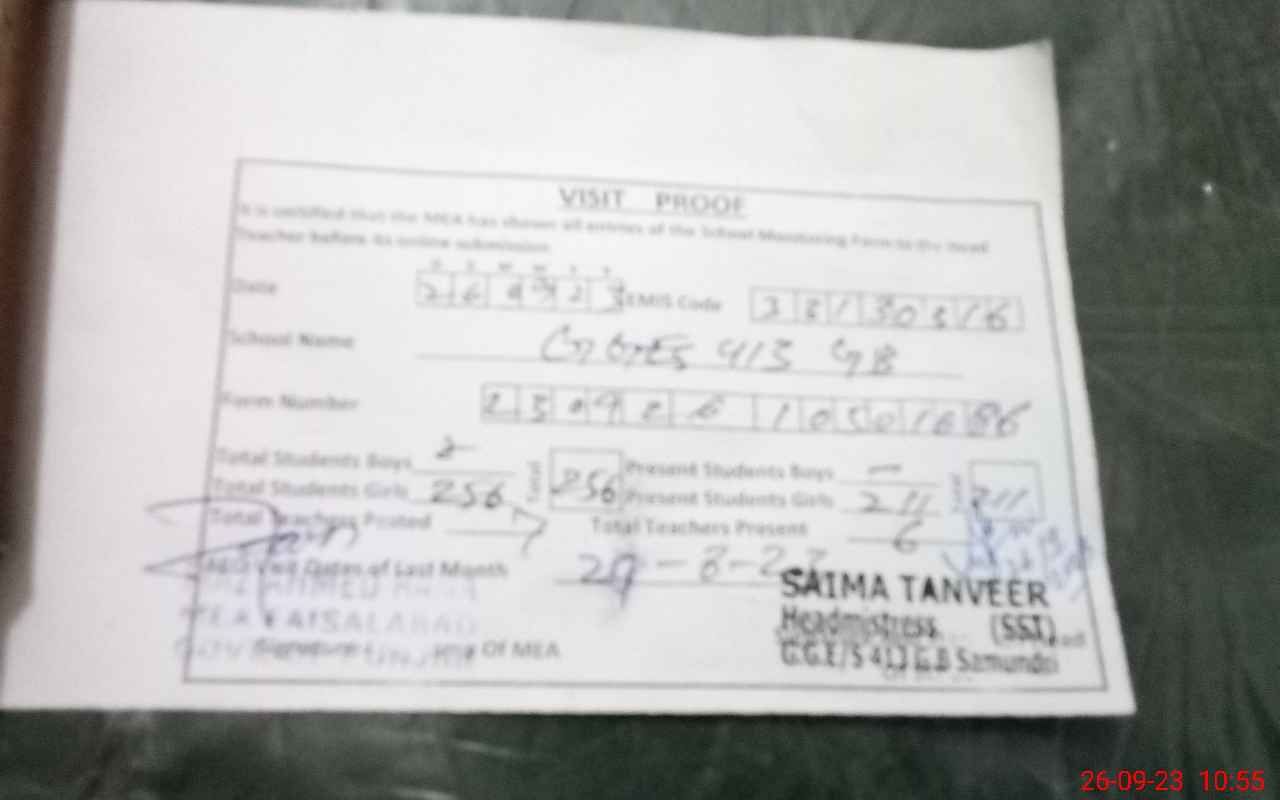 VISIT PROOF
It is certified that the MEA has shown all entries of the School Monitoring Form to the Head
Teacher before its online submission
Date 26 09 23 EMIS Code
School Name GGES 413 GB
Form Number
Total Students Boys Total 256 Present Students Boys — Total 211
Total Students Girls 256 Present Students Girls 211
Total Teachers Posted 7 Total Teachers Present 6
Dates of Last Month 29-8-23
SAIMA TANVEER
MEA FAISALABAD Headmistress (SST)
Signature Of MEA G.G.E/S 413 G.B Samundri
26-09-23 10:55